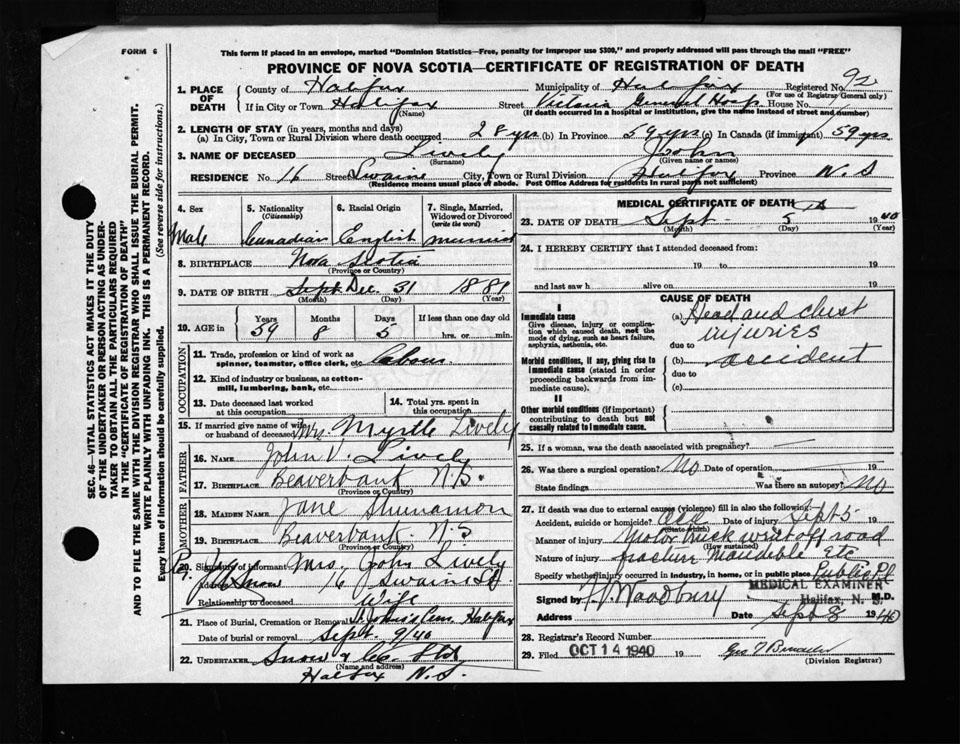 FORM 6
This form if placed in an envelope, marked "Dominion Statistics—Free, penalty for improper use $300," and properly addressed will pass through the mail "FREE"
PROVINCE OF NOVA SCOTIA—CERTIFICATE OF REGISTRATION OF DEATH
SEC. 46—VITAL STATISTICS ACT MAKES IT THE DUTY
OF THE UNDERTAKER OR PERSON ACTING AS UNDER-
TAKER TO OBTAIN ALL THE PARTICULARS REQUIRED
IN THE "CERTIFICATE OF REGISTRATION OF DEATH"
AND TO FILE THE SAME WITH THE DIVISION REGISTRAR WHO SHALL ISSUE THE BURIAL PERMIT.
WRITE PLAINLY WITH UNFADING INK. THIS IS A PERMANENT RECORD.
Every item of information should be carefully supplied. (See reverse side for instructions.)
1. PLACE OF DEATH County of Halifax Municipality of Halifax Registered No.
(For use of Registrar General only)
If in City or Town Halifax Street Victoria General Hosp House No.
(Name) (If death occurred in a hospital or institution, give the name instead of street and number)
2. LENGTH OF STAY (in years, months and days)
(a) In City, Town or Rural Division where death occurred 28 yrs (b) In Province 59 yrs (c) In Canada (if immigrant) 59 yrs
3. NAME OF DECEASED Lively John
(Surname) (Given name or names)
RESIDENCE No. 16 Street Swaine City, Town or Rural Division Halifax Province N.S
(Residence means usual place of abode. Post Office Address for residents in rural parts not sufficient)
4. Sex Male
5. Nationality (Citizenship) Canadian
6. Racial Origin English
7. Single, Married, Widowed or Divorced (write the word) Married
8. BIRTHPLACE Nova Scotia
(Province or Country)
9. DATE OF BIRTH Sept Dec. 31 1881
(Month) (Day) (Year)
10. AGE in Years Months Days If less than one day old
59 8 5 hrs. or min.
OCCUPATION
11. Trade, profession or kind of work as spinner, teamster, office clerk, etc. Labour
12. Kind of industry or business, as cotton-mill, lumbering, bank, etc.
13. Date deceased last worked at this occupation
14. Total yrs. spent in this occupation
15. If married give name of wife or husband of deceased Mrs. Myrtle Lively
FATHER
16. NAME John V. Lively
17. BIRTHPLACE Beaverbank N.S.
(Province or Country)
MOTHER
18. MAIDEN NAME Jane
19. BIRTHPLACE Beaverbank N.S
(Province or Country)
20. Signature of informant Mrs. John Lively
16 Swaine St
Relationship to deceased Wife
21. Place of Burial, Cremation or Removal St John's Cem. Halifax
Date of burial or removal Sept. 9/40
22. UNDERTAKER Snow & Co. Ltd
(Name and address)
Halifax N.S.
MEDICAL CERTIFICATE OF DEATH
23. DATE OF DEATH Sept 5 1940
(Month) (Day) (Year)
24. I HEREBY CERTIFY that I attended deceased from:
19 to 19
and last saw h alive on 19
CAUSE OF DEATH
I
Immediate cause (a) Head and chest
Give disease, injury or complication which caused death, not the mode of dying, such as heart failure, asphyxia, asthenia, etc. due to injuries
Morbid conditions, if any, giving rise to immediate cause (stated in order proceeding backwards from immediate cause). (b) accident
due to
(c)
II
Other morbid conditions (if important) contributing to death but not causally related to immediate cause.
25. If a woman, was the death associated with pregnancy?
26. Was there a surgical operation? No Date of operation 19
State findings Was there an autopsy? No
27. If death was due to external causes (violence) fill in also the following:
Accident, suicide or homicide? Acc Date of injury Sept 5 19
(State which)
Manner of injury Motor truck went off road
(How sustained)
Nature of injury fracture Mandible etc
Specify whether injury occurred in industry, in home, or in public place Public Pl
MEDICAL EXAMINER
Signed by Woodbury M.D.
Halifax, N. S.
Address Date Sept 8 1940
28. Registrar's Record Number
29. Filed OCT 14 1940 19
(Division Registrar)